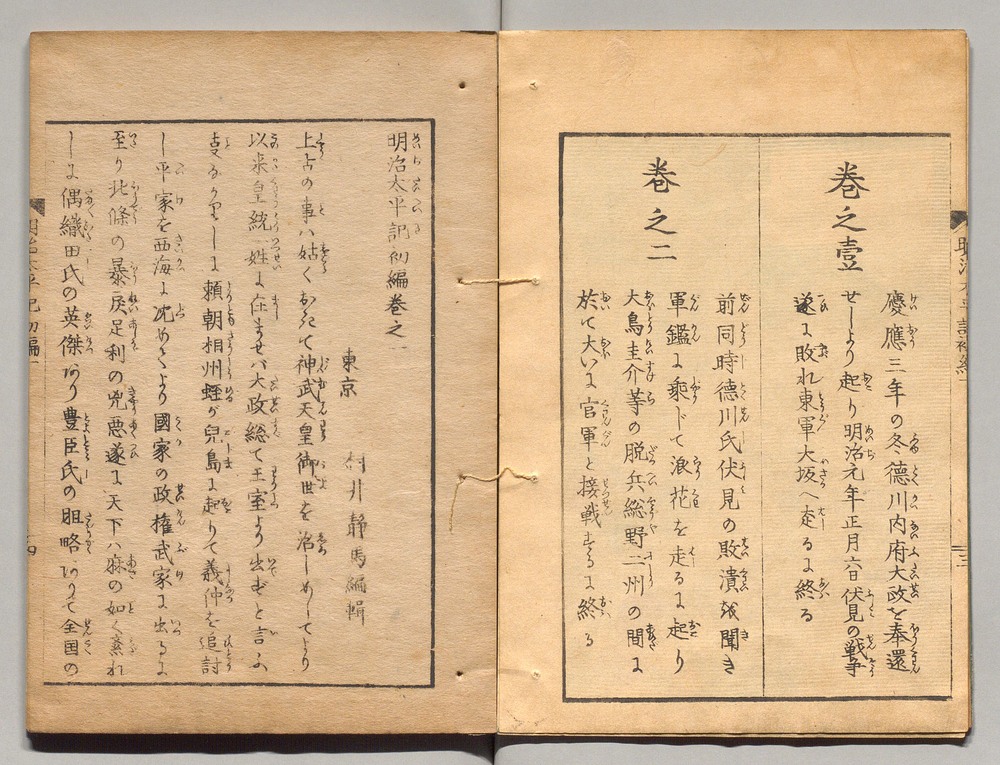 巻之壹
慶應三年の冬德川内府大政を奉還
せしより起り明治元年正月六日伏見の戰爭
遂に敗れ東軍大坂へ走るに終る
巻之二
前同時德川氏伏見の敗潰を聞き
軍鑑に乘じて浪花を走るに起り
大鳥圭介等の脱兵総野二州の間に
於て大いに官軍と接戰するに終る
明治太平記初編巻之一
東京 村井靜馬編輯
上古の事ハ姑くおきて神武天皇御世を治しめしてより
以来皇統一姓に在ませバ大政総て王室より出ざと言ふ
頼朝相州蛭が児島に起りて義仲を追討
し平家を西海に沈めしより國家の政權武家に出るに
至り北條の暴戻足利の兇悪遂に天下ハ麻の如く紊れ
しに偶織田氏の英傑あり豊臣氏の胆略ありて全国の